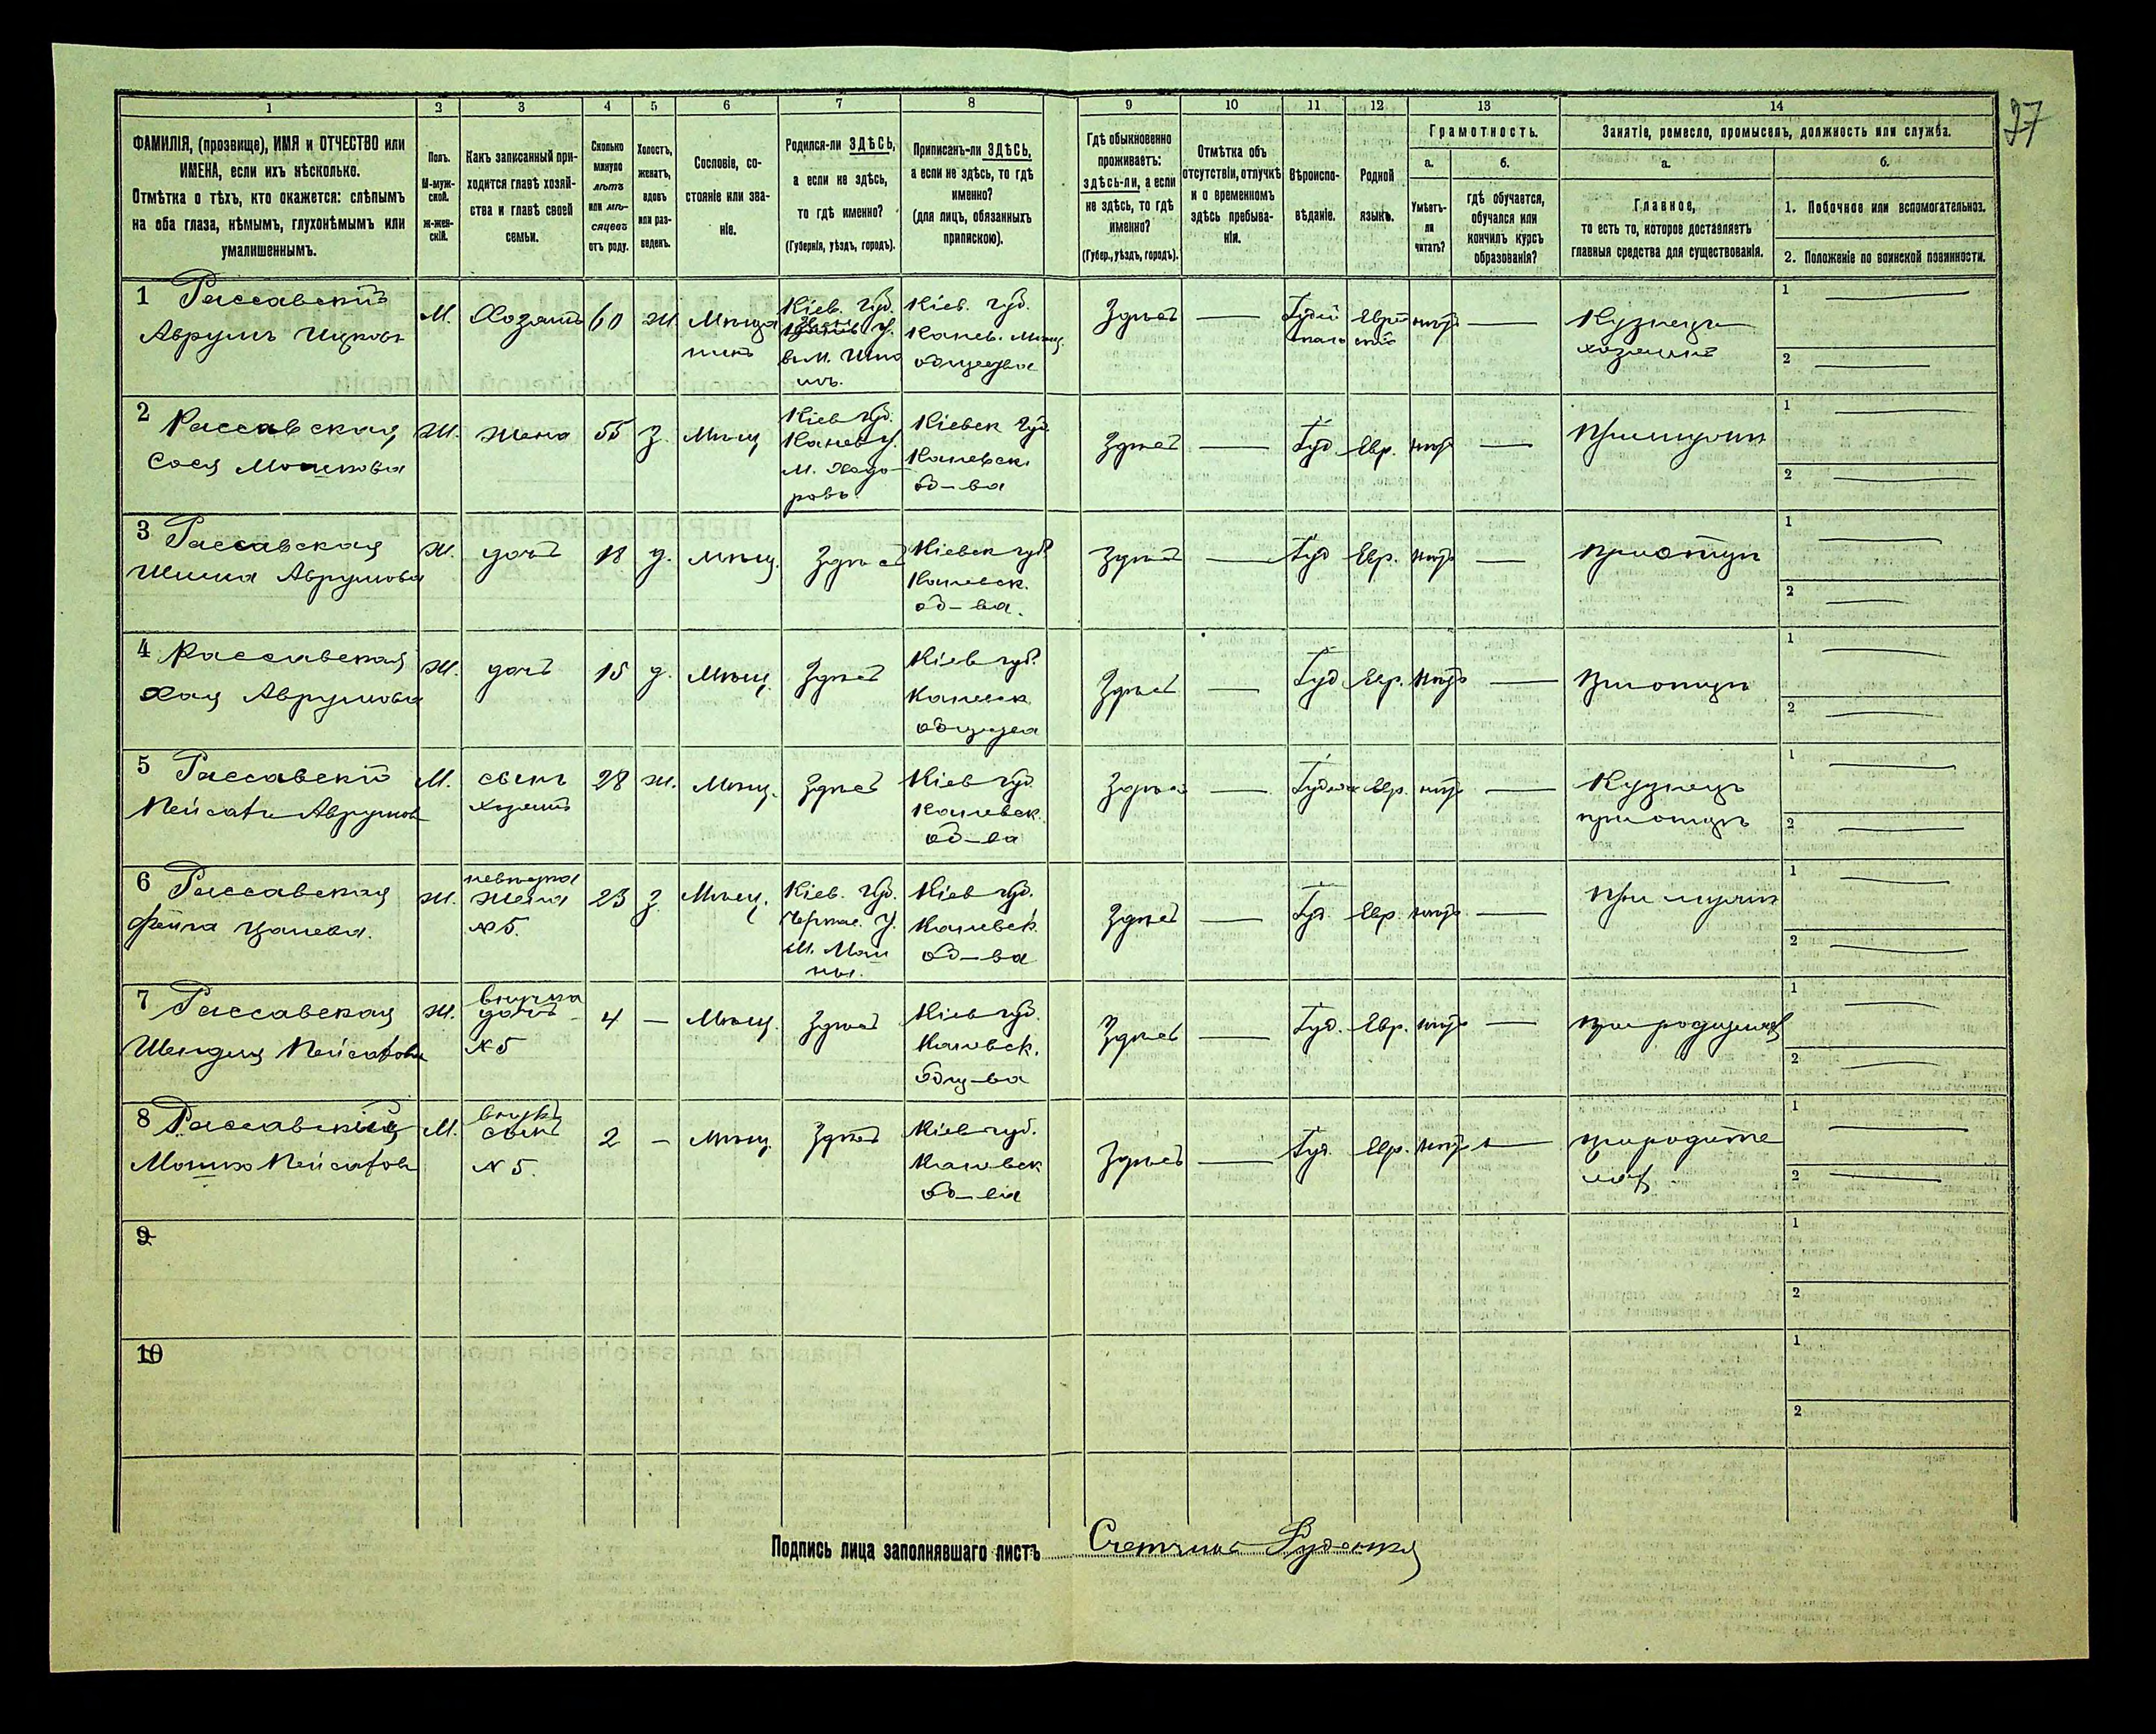 27
1 2 3 4 5 6 7 8 9 10 11 12 13 14
ФАМИЛІЯ, (прозвище), ИМЯ и ОТЧЕСТВО или
ИМЕНА, если ихъ нѣсколько.
Отмѣтка о тѣхъ, кто окажется: слѣпымъ
на оба глаза, нѣмымъ, глухонѣмымъ или
умалишеннымъ.
Полъ.
М-муж-
ской.
Ж-жен-
скій.
Какъ записанный при-
ходится главѣ хозяй-
ства и главѣ своей
семьи.
Сколько
минуло
лѣтъ
или мѣ-
сяцевъ
отъ роду.
Холостъ,
женатъ,
вдовъ
или раз-
веденъ.
Сословіе, со-
стояніе или зва-
ніе.
Родился-ли ЗДѢСЬ,
а если не здѣсь,
то гдѣ именно?
(Губернія, уѣздъ, городъ).
Приписанъ-ли ЗДѢСЬ,
а если не здѣсь, то гдѣ
именно?
(для лицъ, обязанныхъ
припискою).
Гдѣ обыкновенно
проживаетъ:
здѣсь-ли, а если
не здѣсь, то гдѣ
именно?
(Губер., уѣздъ, городъ).
Отмѣтка объ
отсутствіи, отлучкѣ
и о временномъ
здѣсь пребыва-
ніи.
Вѣроиспо-
вѣданіе.
Родной
языкъ.
Грамотность.
а.
Умѣетъ-
ли
читать?
б.
гдѣ обучается,
обучался или
кончилъ курсъ
образованія?
Занятіе, ремесло, промыселъ, должность или служба.
а.
Главное,
то есть то, которое доставляетъ
главныя средства для существованія.
б.
1. Побочное или вспомогательноз.
2. Положеніе по воинской повинности.
1 Рассавскій
Аврумъ Ицковъ
М.
Хозяинъ
60
Ж.
Мѣща
нинъ
Кіев. губ.
Кіев. губ.
Канев. Мѣщ.
общества
Здѣсь
Іудей
Еврей
скій
нѣтъ
Кузнецъ
хозяинъ
1
2
2 Рассавская
Сося Мошкова
Ж.
жена
55
З.
Мѣщ
Кіев губ.
Канев у.
М. Ходо-
ровъ.
Кіевск губ.
Каневск.
об-ва
Здѣсь
Іуд
Евр.
нѣтъ
При мужѣ
1
2
3 Рассавская
Аврумова
Ж.
дочь
18
д.
Мѣщ.
Здѣсь
Кіевск губ.
Каневск.
об-ва.
Здѣсь
Іуд
Евр.
нѣтъ
при отцѣ
1
2
4 Рассавская
Хая Аврумова
Ж.
дочь
15
д.
Мѣщ.
Здѣсь
Кіев губ.
Каневск
Здѣсь
Іуд
Евр.
нѣтъ
при отцѣ
1
2
5 Рассавскій
Пейсахъ Аврумов
М.
сынъ
хозяина
28
ж.
Мѣщ.
Здѣсь
Кіев губ.
Каневск.
об-ва
Здѣсь
Евр.
нѣтъ
Кузнецъ
при отцѣ
1
2
6 Рассавская
Фейга
Ж.
невѣстка
жена
№5.
23
З.
Мѣщ.
Кіев. губ.
Черкас. у.
М. Мош
ны.
Кіев губ.
Каневск.
об-ва
Здѣсь
Іуд.
Евр.
нѣтъ
При мужѣ
1
2
7 Рассавская
Шендля Пейсахова
Ж.
внучка
дочь
№5
4
Мѣщ.
Здѣсь
Кіев губ.
Каневск.
общ-ва
Здѣсь
Іуд.
Евр.
нѣтъ
при родителяхъ
1
2
8 Рассавскій
Мошко Пейсахов
М.
внукъ
сынъ
№5.
2
Мѣщ.
Здѣсь
Кіев губ.
Каневск
об-ва
Здѣсь
Іуд.
Евр.
нѣтъ
при родите
ляхъ
1
2
9
1
2
10
1
2
Подпись лица заполнявшаго листъ Счетчикъ